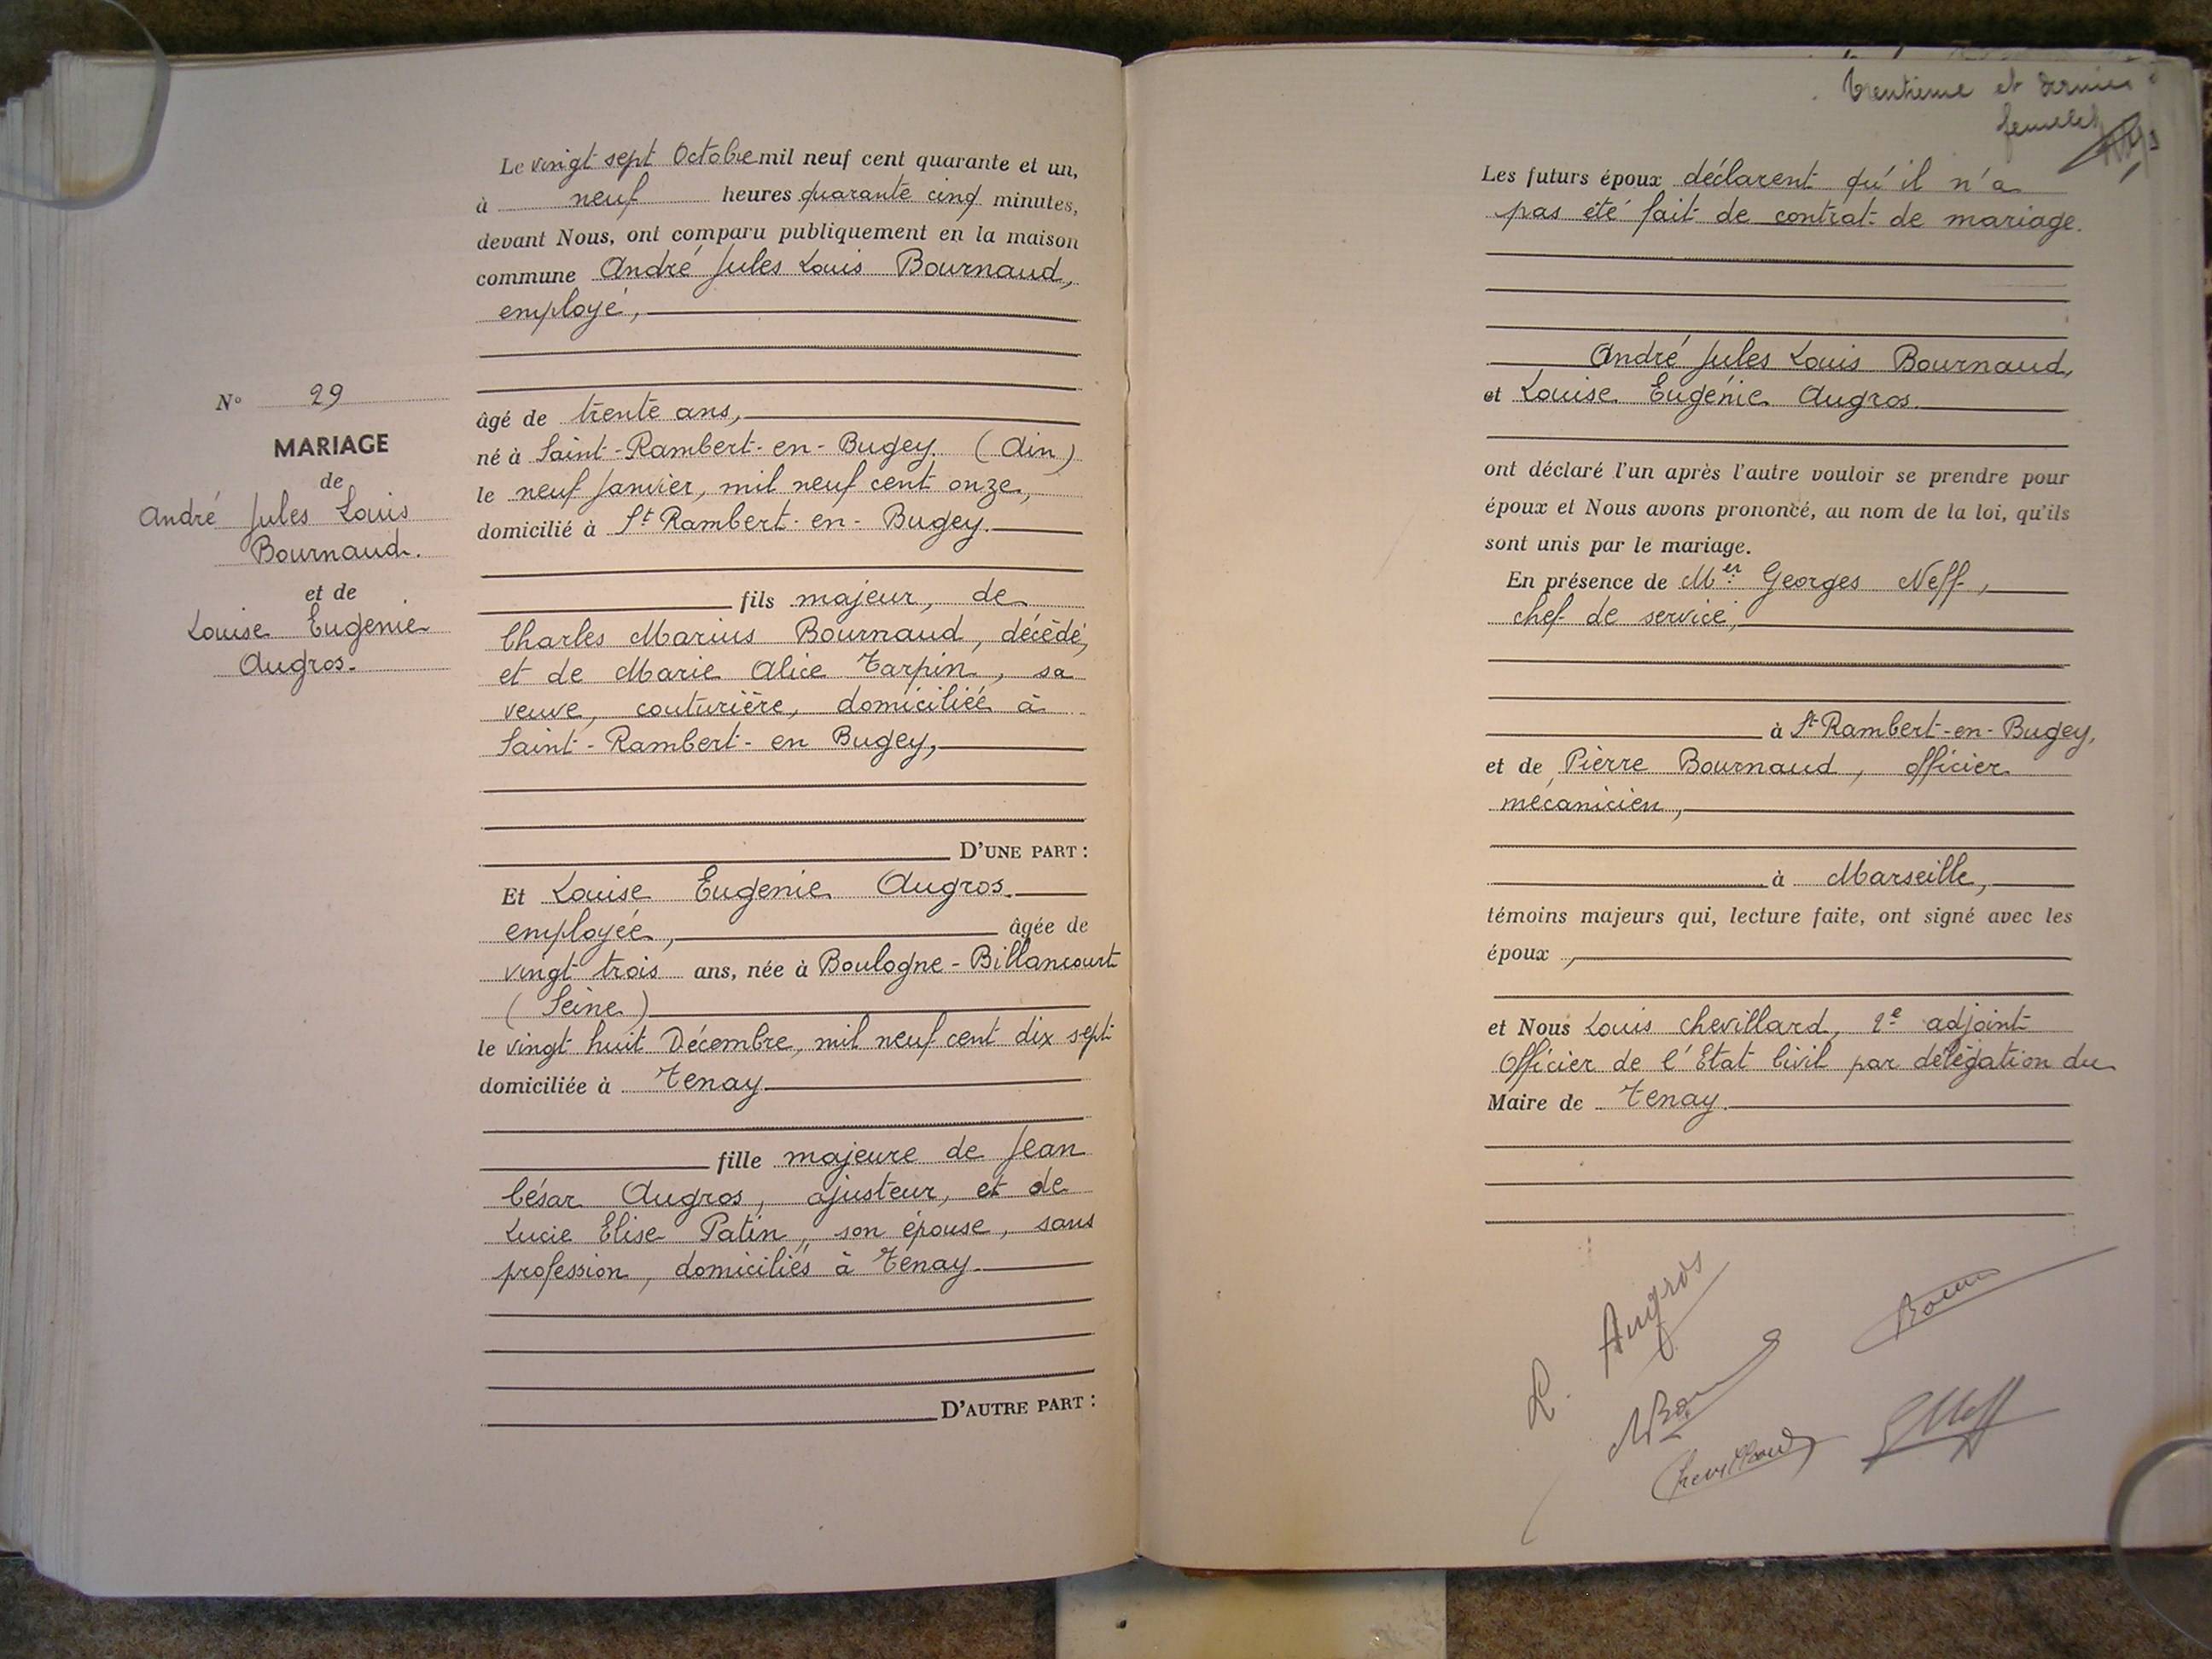 Le vingt sept Octobre mil neuf cent quarante et un,
à neuf heures quarante cinq minutes,
devant Nous, ont comparu publiquement en la maison
commune André Jules Louis Bournaud,
employé,
N° 29
MARIAGE
de
André Jules Louis
Bournaud.
et de
Louise Eugenie
Augros.
âgé de trente ans,
né à Saint-Rambert-en-Bugey. (Ain)
le neuf Janvier, mil neuf cent onze,
domicilié à St Rambert-en-Bugey.
fils majeur, de
Charles Marius Bournaud, décédé,
et de Marie Alice Tarpin, sa
veuve, couturière, domiciliée à
Saint-Rambert-en Bugey,
D'UNE PART :
Et Louise Eugenie Augros.
employée, âgée de
vingt trois ans, née à Boulogne-Billancourt
(Seine)
le vingt huit Décembre, mil neuf cent dix sept
domiciliée à Tenay
fille majeure de Jean
César Augros, ajusteur, et de
Lucie Elise Patin, son épouse, sans
profession, domiciliés à Tenay.
D'AUTRE PART :
trentième et dernier
feuillet
Les futurs époux déclarent qu'il n'a
pas été fait de contrat de mariage.
André Jules Louis Bournaud,
et Louise Eugénie Augros.
ont déclaré l'un après l'autre vouloir se prendre pour
époux et Nous avons prononcé, au nom de la loi, qu'ils
sont unis par le mariage.
En présence de Mer Georges Neff,
chef de service,
à St Rambert-en-Bugey,
et de Pierre Bournaud, officier
mécanicien,
à Marseille,
témoins majeurs qui, lecture faite, ont signé avec les
époux,
et Nous Louis Chevillard, 2e adjoint
Officier de l'Etat Civil par délégation du
Maire de Tenay.
L. Augros
Chevillard
GNeff